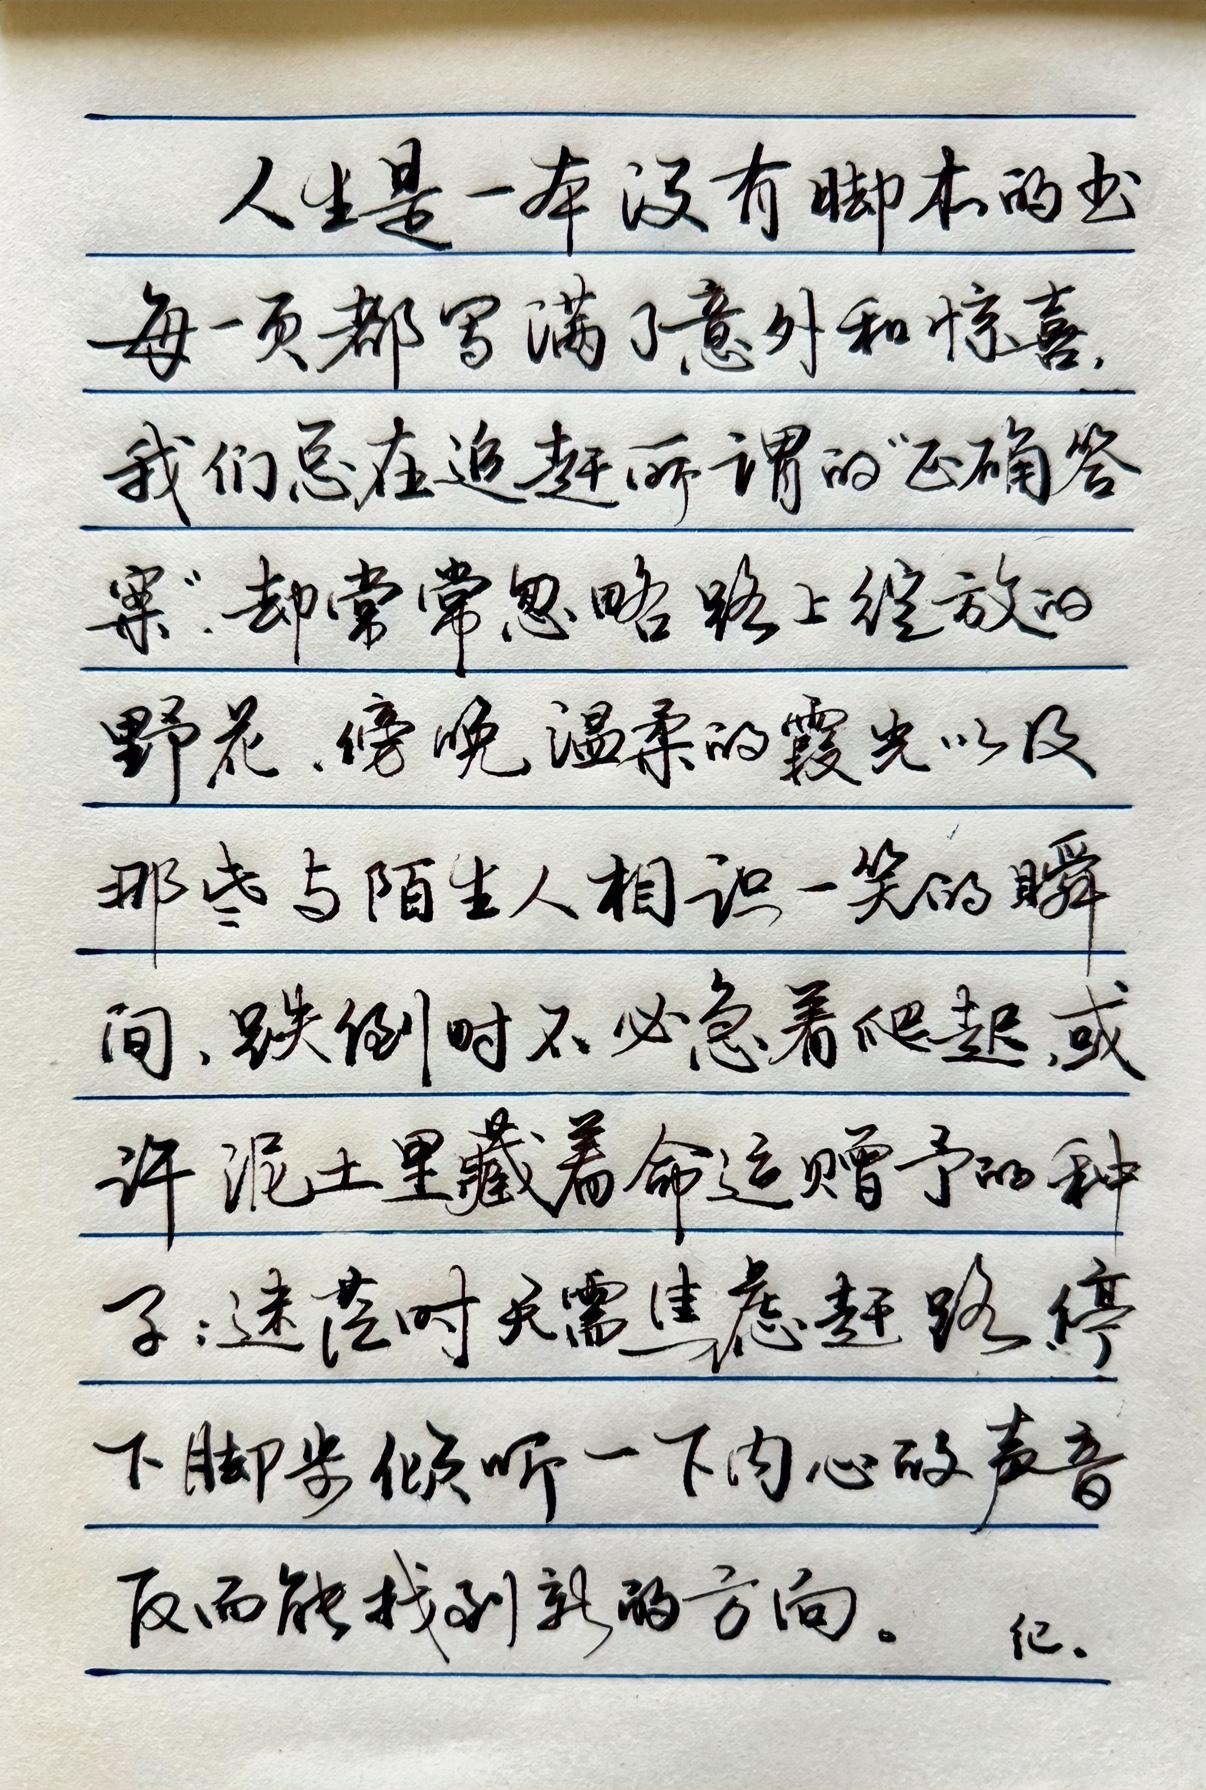 人生是一本没有脚本的书
每一页都写满了意外和惊喜，
我们总在追赶所谓的“正确答
案”，却常常忽略路上绽放的
野花、傍晚温柔的霞光以及
那些与陌生人相识一笑的瞬
间、跌倒时不必急着爬起，或
许泥土里藏着命运赠予的种
子；迷茫时无需焦虑赶路停
下脚步倾听一下内心的声音
反而能找到新的方向。
纪.